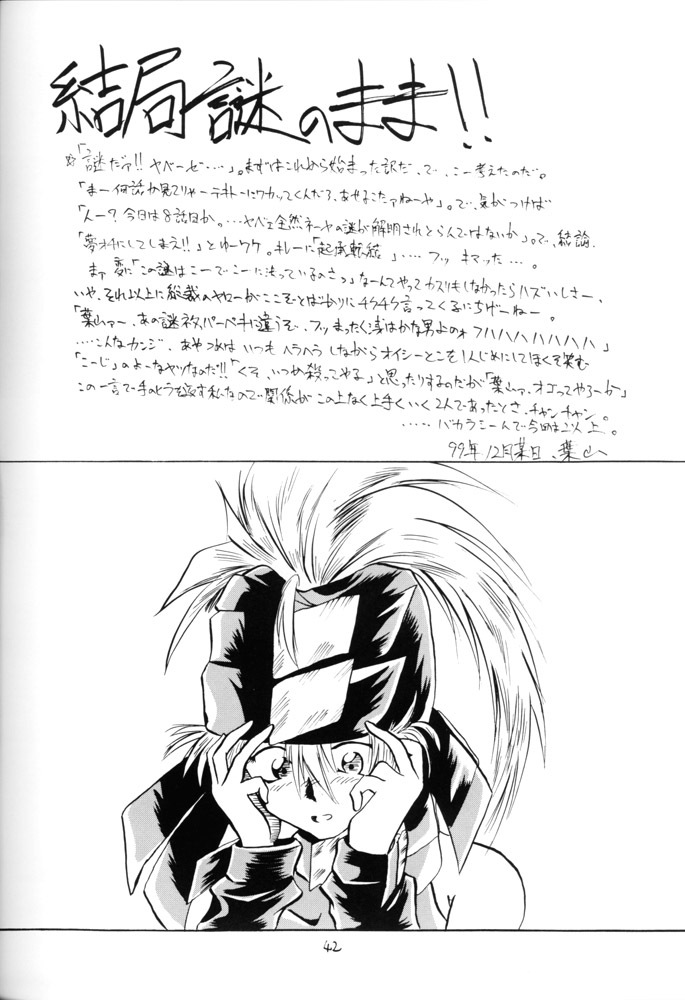 結局謎のまま!!
☆「謎だァ!! ヤベーぜ‥‥」。まずはこれから始まった訳だ、で、こー考えたのだ。
「まー何話か見てりゃーテキトーにワカッてくんだろ、あせるこたァねーや」。で、気がつけば
「んー?今日は8話目か。‥‥ヤベェ全然ネーヤの謎が解明されとらんではないか」。で、結論、
「夢オチにしてしまえ!!」とゆーワケ。キレーに「起承転結」‥‥フッ キマッた‥‥。
まァ変に「この謎はこーでこーに決っているのさっ」なーんてやってカスリもしなかったらハズいしさー、
いや、それ以上に総裁のヤローがここぞとばかりにチクチク言ってくるにちげーねー。
「葉山ァー、あの謎ネタ、パーペキに違うぞ、フッまったく浅はかな男よのォ フハハハハハハハ」
‥‥こんなカンジ。あやつめはいつもヘラヘラしながらオイシーとこを1人じめにしてほくそ笑む
「こーじ」のよーなヤツなのだ!!「くそ、いつか殺ってやる」と思ったりするのだが「葉山ァ、オゴってやろーか」
この一言で手のひらを返す私なので関係がこの上なく上手くいく2人であったとさ、チャンチャン。
‥‥‥バカラシーんで今回は以上。
99年12月某日、葉山
42